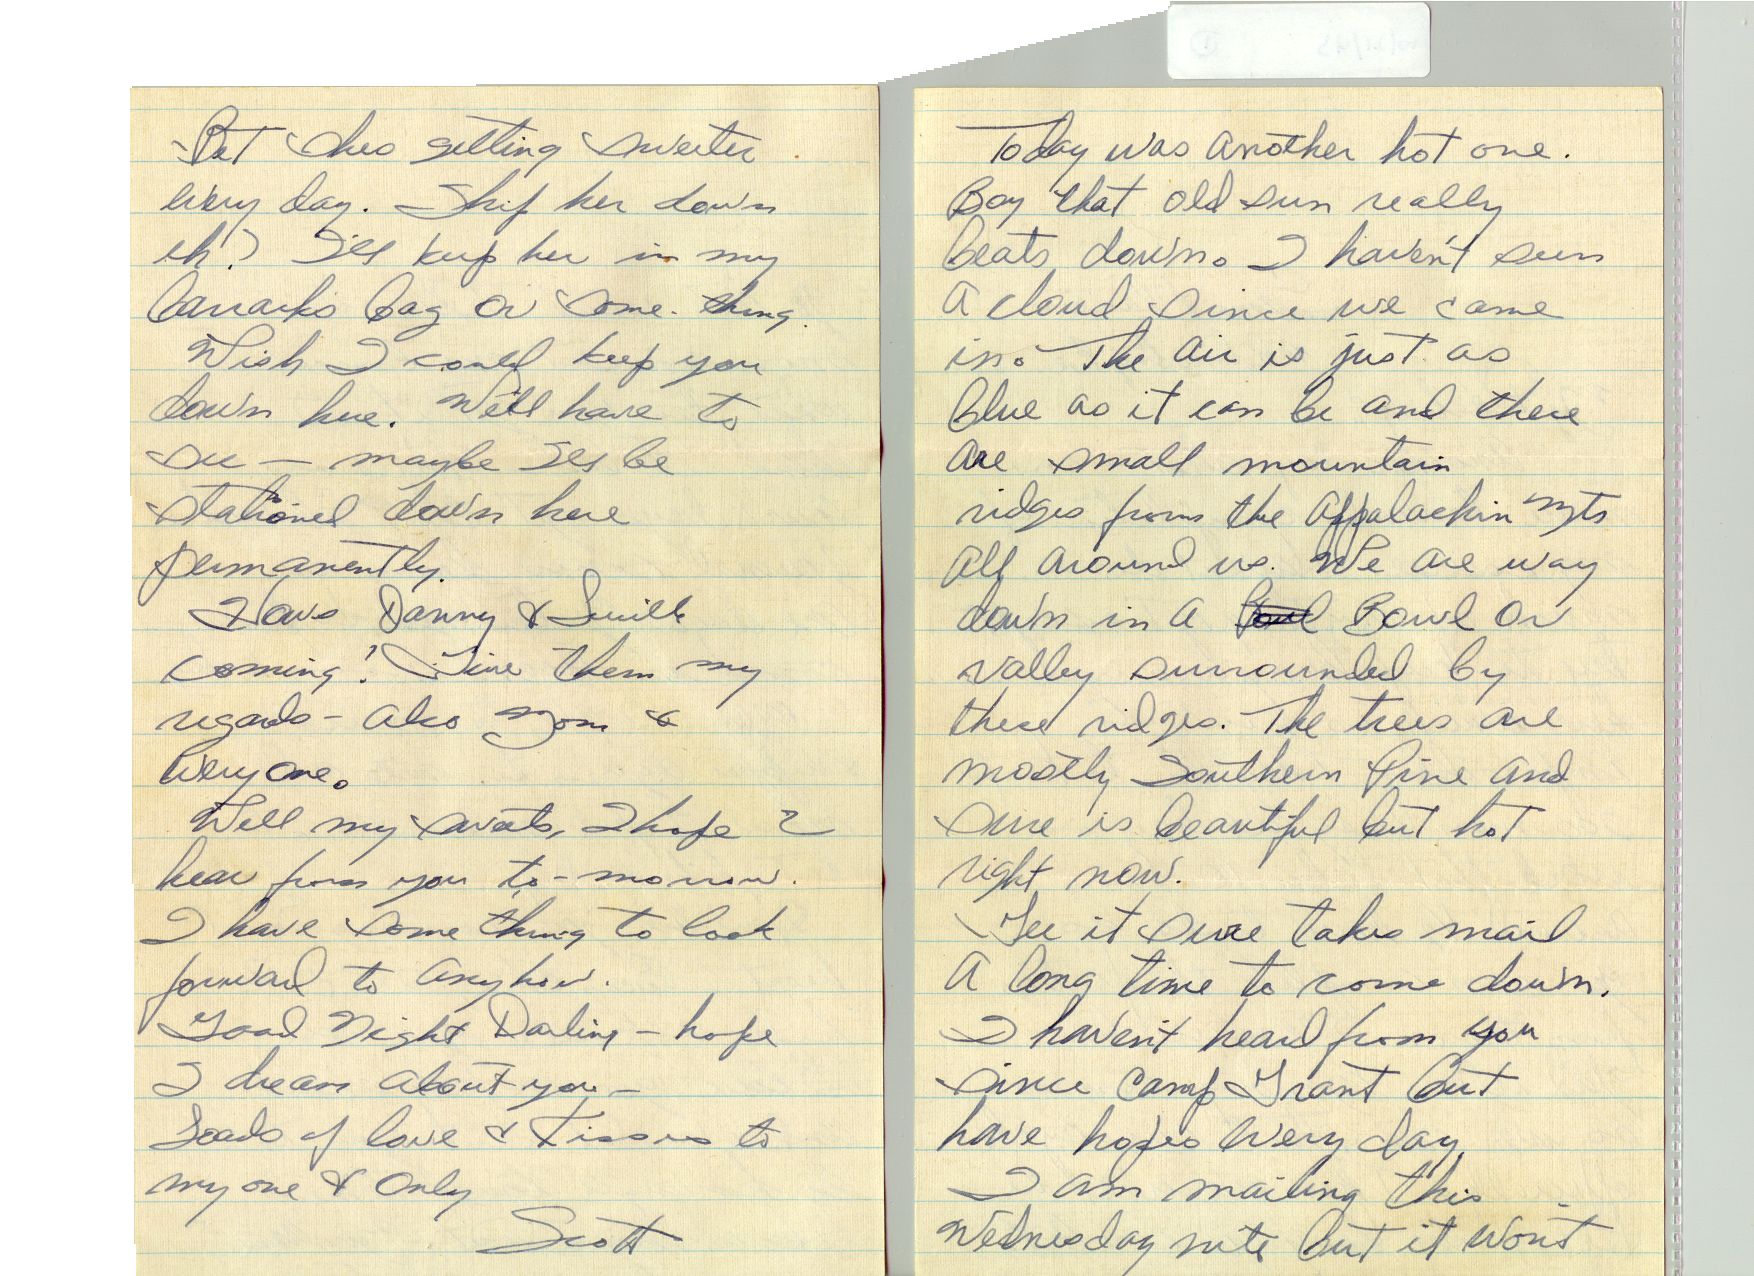 Bet shes getting sweeter
every day. Ship her down
eh? I'll keep her in my
barracks bag or some-thing.
Wish I could keep you
down here. We'll have to
see — maybe I'll be
stationed down here
permanently.
Hows Danny & Lucille
coming? Give them my
regards - also Mom &
everyone.
Well my sweets, I hope 2
hear from you to-morrow.
I have some thing to look
forward to anyhow.
Good Night Darling - hope
I dream about you -
Loads of love & Kisses to
my one & Only
Scott
Today was another hot one.
Boy that old sun really
beats down. I haven't seen
a cloud since we came
in. The air is just as
blue as it can be and there
are small mountain
ridges from the Appalackin Mts
all around us. We are way
down in a Bowl or
valley surrounded by
these ridges. The trees are
mostly Southern Pine and
sure is beautiful but hot
right now.
Gee it sure takes mail
a long time to come down.
I haven't heard from you
since Camp Grant but
have hopes every day.
I am mailing this
Wednesday nite but it won't